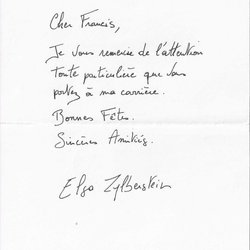 Cher Francis,
Je vous remercie de l'attention
toute particulière que vous
portez à ma carrière.
Bonnes Fêtes.
Sincères Amitiés.
Elsa Zylberstein